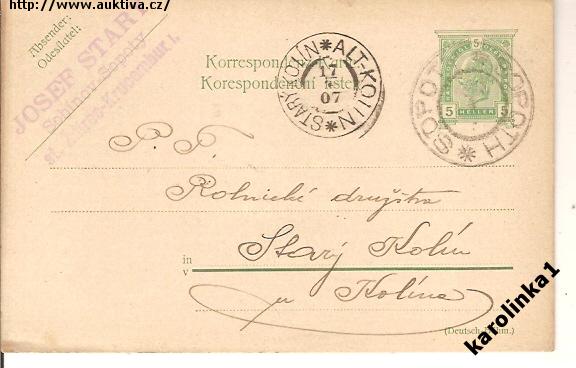 http://www.auktiva.cz/
Absender:
Odesílatel:
JOSEF STARÝ
Sopoty
st.
Korrespondenz-Karte
Korespondenční lístek
STARÝ KOLÍN * ALT-KOLIN *
17
07
SOPOTY * SOPOTH
5
5 5
HELLER
P. T.
Rolnické družstva
in
v
Starý Kolín
u Kolína
(Deutsch-Böhm.)
karolinka1